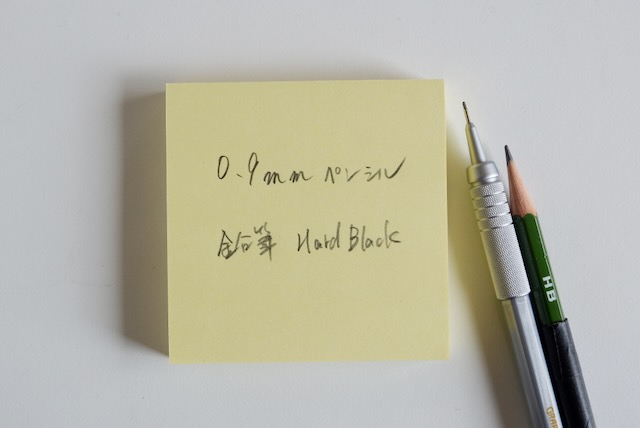 0.9mm ペンシル
鉛筆 Hard Black
HB